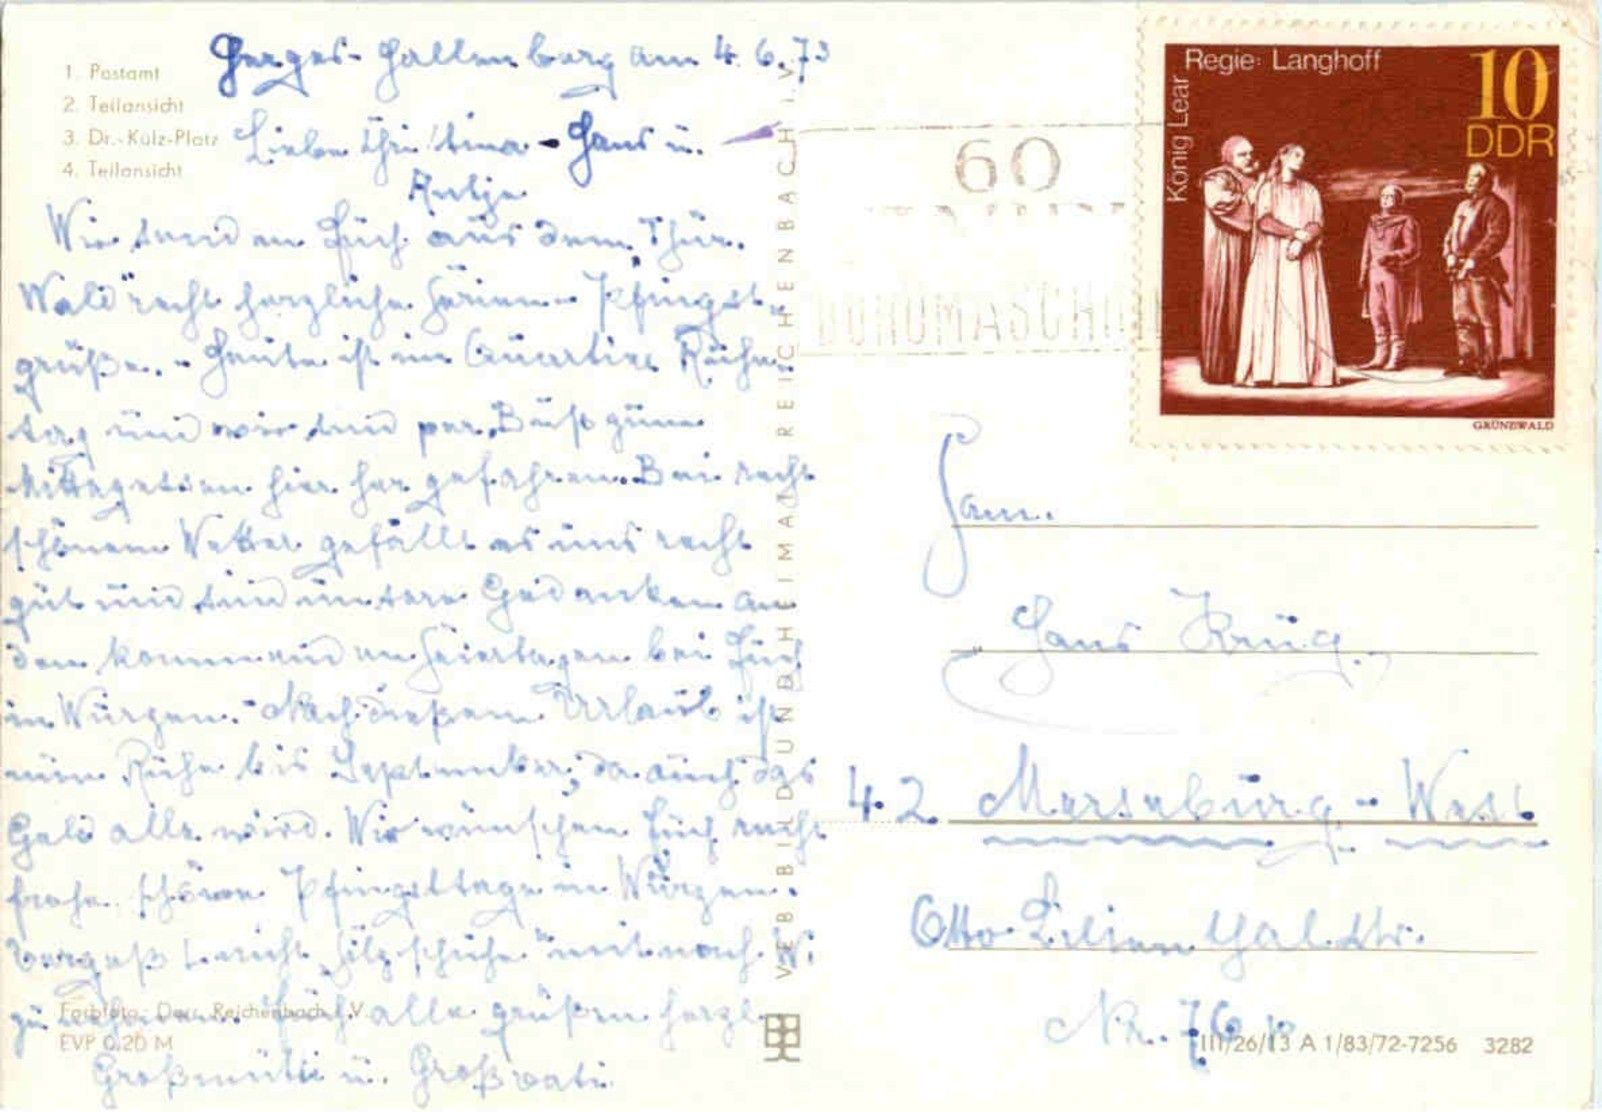 1. Postamt
2. Teilansicht
3. Dr.-Külz-Platz
4. Teilansicht
am 4. 6. 73
Liebe Christina - Hans u.
Antje
Wir senden Euch aus dem Thür.
Wald recht herzliche Ferien- Pfingst-
grüße. - Heute ist im Quartier Ruhe-
tag und wir sind per "Bus" zum
Mittagessen hier her gefahren. Bei recht
schönem Wetter gefällt es uns recht
gut und sind unsere Gedanken an
den kommenden Feiertagen bei Euch
in Wurzen. - Nach diesem Urlaub ist
nun Ruhe bis September, da auch das
Geld alle wird. Wir wünschen Euch recht
frohe schöne Pfingsttage in Wurzen.
Vergeßt nicht "Filzschuhe" mit nach W.
zu nehmen. Euch alle grüßen herzl.
Großmutti u. Großvati
Farbfoto: Darr, Reichenbach i. V.
EVP 0.20 M
VEB BILD UND HEIMAT REICHENBACH i. V.
60
BÜROMASCHINE
Regie: Langhoff
König Lear
10
DDR
GRÜNEWALD
Fam.
Hans Krug
42 Merseburg - West
Otto Lilienthal Str.
Nr. 76
III/26/13 A 1/83/72-7256 3282